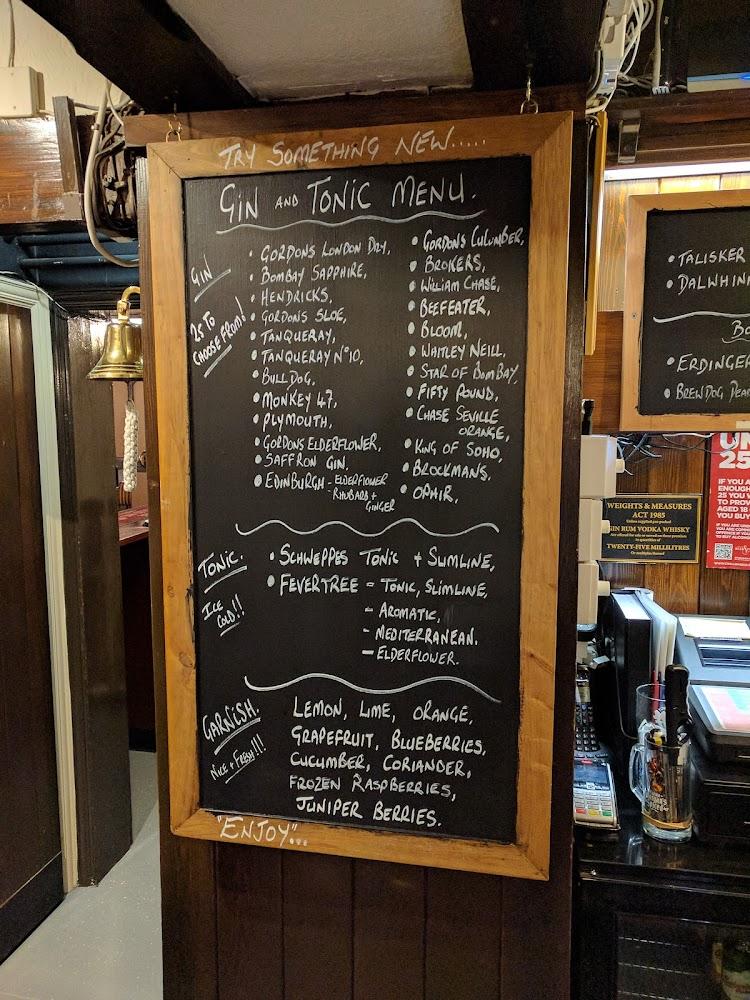 TRY SOMETHING NEW.....
GIN AND TONIC MENU.
GIN
25 TO
CHOOSE FROM!
• GORDONS LONDON DRY,
• BOMBAY SAPPHIRE,
• HENDRICKS,
• GORDONS SLOE,
• TANQUERAY,
• TANQUERAY Nº10,
• BULLDOG,
• MONKEY 47,
• PLYMOUTH,
• GORDONS ELDERFLOWER,
• SAFFRON GIN,
• EDINBURGH - ELDERFLOWER
- RHUBARB +
GINGER
• GORDONS CUCUMBER,
• BROKERS,
• WILLIAM CHASE,
• BEEFEATER,
• BLOOM,
• WHITLEY NEILL,
• STAR OF BOMBAY,
• FIFTY POUND,
• CHASE SEVILLE
ORANGE,
• KING OF SOHO,
• BROCKMANS,
• OPHIR,
TONIC.
ICE
COLD!!
• SCHWEPPES TONIC + SLIMLINE,
• FEVERTREE - TONIC, SLIMLINE,
- AROMATIC,
- MEDITERRANEAN.
- ELDERFLOWER.
GARNISH.
NICE + FRESH!!!
LEMON, LIME, ORANGE,
GRAPEFRUIT, BLUEBERRIES,
CUCUMBER, CORIANDER,
FROZEN RASPBERRIES,
JUNIPER BERRIES.
"ENJOY"...
• TALISKER
• DALWHIN
BO
• ERDINGER
• BREWDOG
WEIGHTS & MEASURES
ACT 1985
GIN RUM VODKA WHISKY
TWENTY-FIVE MILLILITRES
UN
25
IF YOU A
ENOUGH
25 YOU
TO PROV
AGED 18
YOU BUY